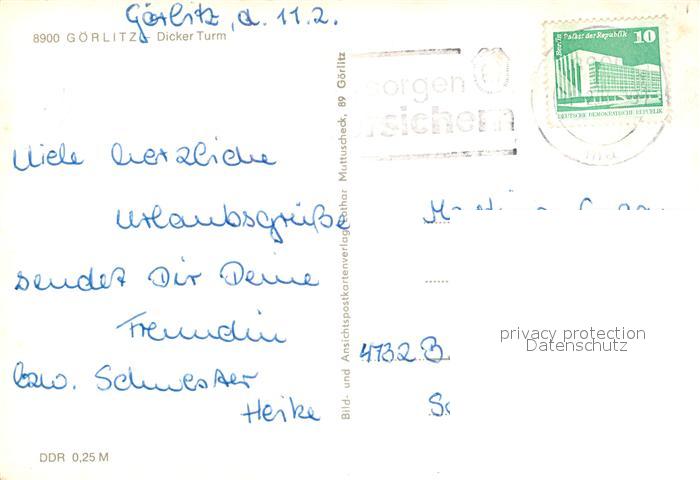 Görlitz, d. 11.2.
8900 GÖRLITZ - Dicker Turm
Viele herzliche
Urlaubsgrüße
sendet Dir Deine
Freundin
bzw. Schwester
Heike
DDR 0,25 M
Bild- und Ansichtspostkartenverlag Lothar Muttuscheck, 89 Görlitz
sichern
Berlin Palast der Republik 10
DEUTSCHE DEMOKRATISCHE REPUBLIK
4732 B
privacy protection
Datenschutz